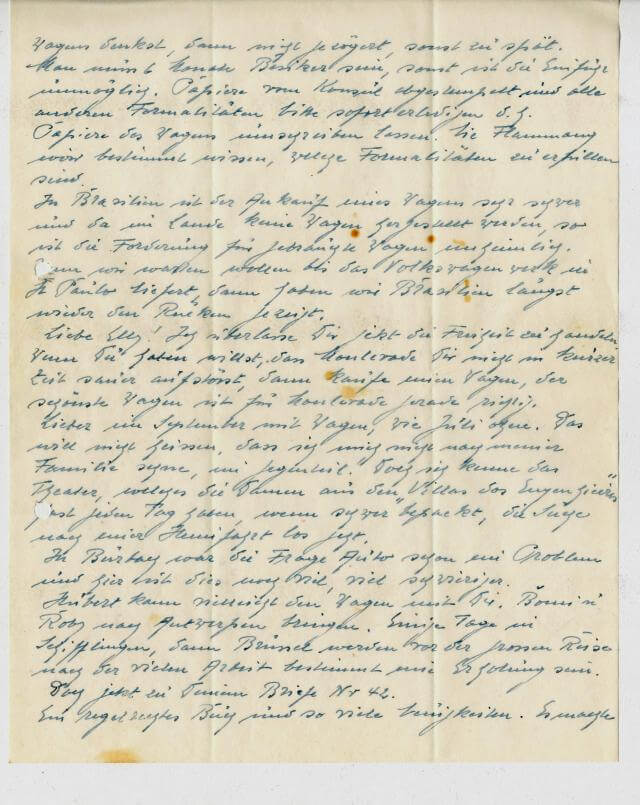 Wagens denkst, dann nicht gezögert, sonst zu spät.
Man muss 6 Monate Besitzer sein, sonst ist die Einfuhr
unmöglich. Papiere vom Konsul abgestempelt und alle
anderen Formalitäten bitte sofort erledigen d. h.
Papiere des Wagens umschreiben lassen. Die Flammang
wird bestimmt wissen, welche Formalitäten zu erfüllen
sind.
In Brasilien ist der Ankauf eines Wagens sehr schwer
und da im Lande keine Wagen hergestellt werden, so
ist die Forderung für gebrauchte Wagen unheimlich.
Denn wir warten wollen bis das Volkswagenwerk in
S. Paulo liefert, dann haben wir Brasilien längst
wieder den Rücken gezeigt.
Liebe Elly! Ich überlasse Dir jetzt die Freiheit zu handeln.
Wenn Du haben willst, das Monlevade Dir nicht in kurzer
Zeit sauer aufstösst, dann kaufe einen Wagen, der
schönste Wagen ist für Monlevade gerade richtig.
Lieber im September mit Wagen, wie Juli ohne. Das
will nicht heissen, dass ich mich nicht nach meiner
Familie sehne, im Gegenteil. Doch ich kenne das
Theater, welches die Damen aus den "Villas dos Engenheiros"
fast jeden Tag haben, wenn schwer bepackt, die Suche
nach einer Heimfahrt los geht.
In Bürbach war die Frage Auto schon ein Problem
und hier ist dies noch viel, viel schwieriger.
Hubert kann vielleicht den Wagen mit Dir, Bomi u
Roby nach Antwerpen bringen. Einige Tage in
Schifflingen, dann Brüssel werden vor der grossen Reise
nach der vielen Arbeit bestimmt eine Erholung sein.
Doch jetzt zu Deinem Briefe Nr 42.
Ein regelrechtes Buch und so viele Neuigkeiten. Es machte